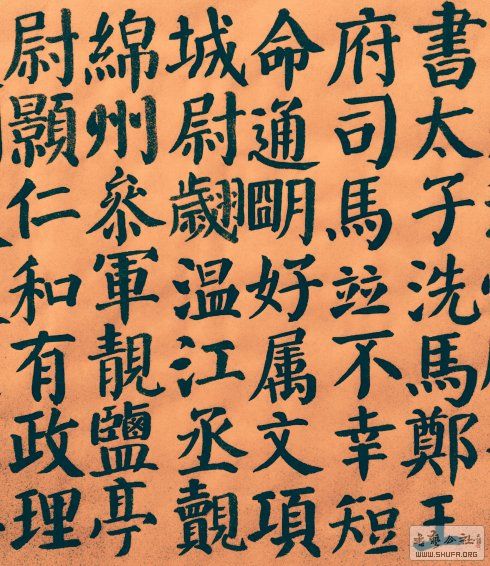 書太子洗馬鄭王
府司馬竝不幸短
命通朙好属文項
城尉翽温江丞覿
綿州叅軍靚鹽亭
尉顥仁和有政理
书艺公社
WWW.SHUFA.ORG